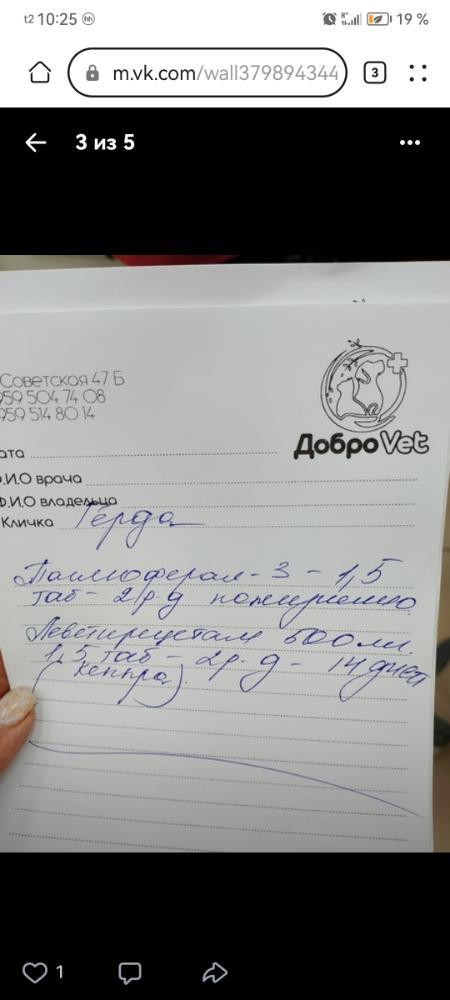 t2 10:25
19 %
m.vk.com/wall379894344
3
3 из 5
Советская 47 Б
959 504 74 08
959 514 80 14
ДоброVet
ата
.И.О врача
Ф.И.О владельца
Кличка Герда
Паглюферал - 3 - 1,5
таб - 2 р. д пожизненно
Леветирацетам 500 мг.
1,5 таб - 2 р. д - 14 дней
(Кеппра).
1